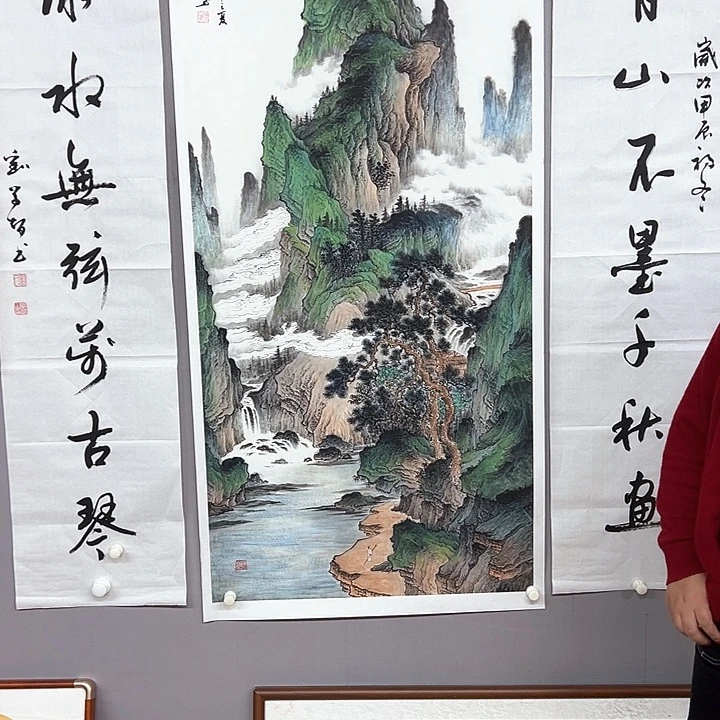 歲次甲辰初冬
青山不墨千秋畫
水無弦萬古琴